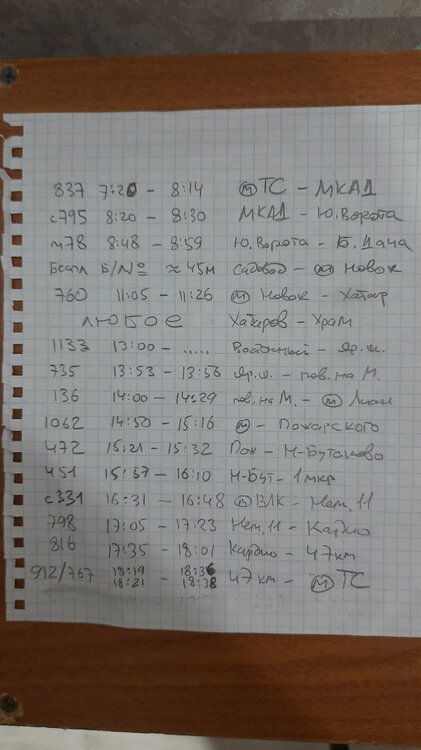 837 7:20 - 8:14 Ⓜ ТС - МКАД
с795 8:20 - 8:30 МКАД - Ю.Ворота
м78 8:48 - 8:59 Ю.Ворота - Б.Дача
Беспл Б/№ ≈ 45м Садовод - Ⓜ Новок
760 11:05 - 11:26 Ⓜ Новок -
ЛЮБОЕ - Храм
1133 13:00 - ..... Восточный - Яр.ш.
735 13:53 - 13:56 Яр.ш. - пов.на М.
136 14:00 - 14:29 пов.на М. - Ⓜ
1062 14:50 - 15:16 Ⓜ - Пожарского
472 15:21 - 15:32 Пож - Н-Бутаково
451 15:57 - 16:10 Н-Бут - 1мкр
с331 16:31 - 16:48 Ⓜ ВЛК - Нем.11
798 17:05 - 17:23 Нем.11 - Кардио
816 17:35 - 18:01 Кардио - 47км
912/767 18:19 - 18:36 47км - Ⓜ ТС
18:21 - 18:38